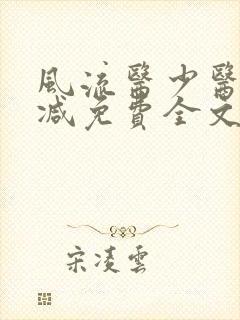 風流醫少醫
減免費全文
宋凌雲